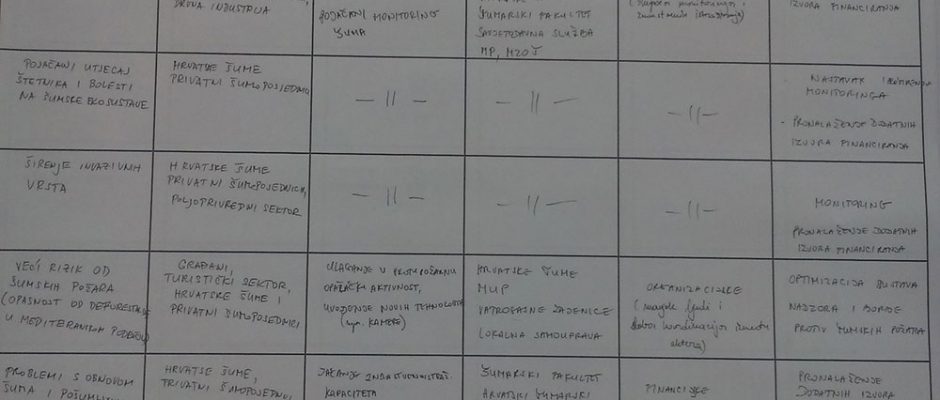 DRVNA INDUSTRIJA
POJAČANI MONITORING
ŠUMA
ŠUMARSKI FAKULTET
SAVJETODAVNA SLUŽBA
MP, MZOŠ
IZVORA FINANCIRANJA
POJAČANI UTJECAJ
ŠTETNIKA I BOLESTI
NA ŠUMSKE EKOSUSTAVE
HRVATSKE ŠUME
PRIVATNI ŠUMOPOSJEDNICI
— || —
— || —
— || —
- NASTAVAK
MONITORINGA
- PRONALAŽENJE DODATNIH
IZVORA FINANCIRANJA
ŠIRENJE INVAZIVNIH
VRSTA
HRVATSKE ŠUME
PRIVATNI ŠUMOPOSJEDNICI,
POLJOPRIVREDNI SEKTOR
— || —
— || —
— || —
MONITORING
PRONALAŽENJE DODATNIH
IZVORA FINANCIRANJA
VEĆI RIZIK OD
ŠUMSKIH POŽARA
(OPASNOST OD
U MEDITERANSKOM PODRUČJU
GRAĐANI,
TURISTIČKI SEKTOR,
HRVATSKE ŠUME I
PRIVATNI ŠUMOPOSJEDNICI
ULAGANJE U PROTUPOŽARNU
AKTIVNOST,
UVOĐENJE NOVIH TEHNOLOGIJA
(npr. KAMERE)
HRVATSKE ŠUME
MUP
VATROGASNE ZAJEDNICE
LOKALNA SAMOUPRAVA
ORGANIZACIJSKE
(manjak ljudi i
koordinacija između
aktera)
OPTIMIZACIJA SUSTAVA
NADZORA I BORBE
PROTIV ŠUMSKIH POŽARA
PROBLEMI S OBNOVOM
ŠUMA I
HRVATSKE ŠUME,
PRIVATNI ŠUMOPOSJEDNICI
JAČANJE
KAPACITETA
ŠUMARSKI FAKULTET
HRVATSKI ŠUMARSKI
FINANCIJSKE
PRONALAŽENJE
DODATNIH IZVORA